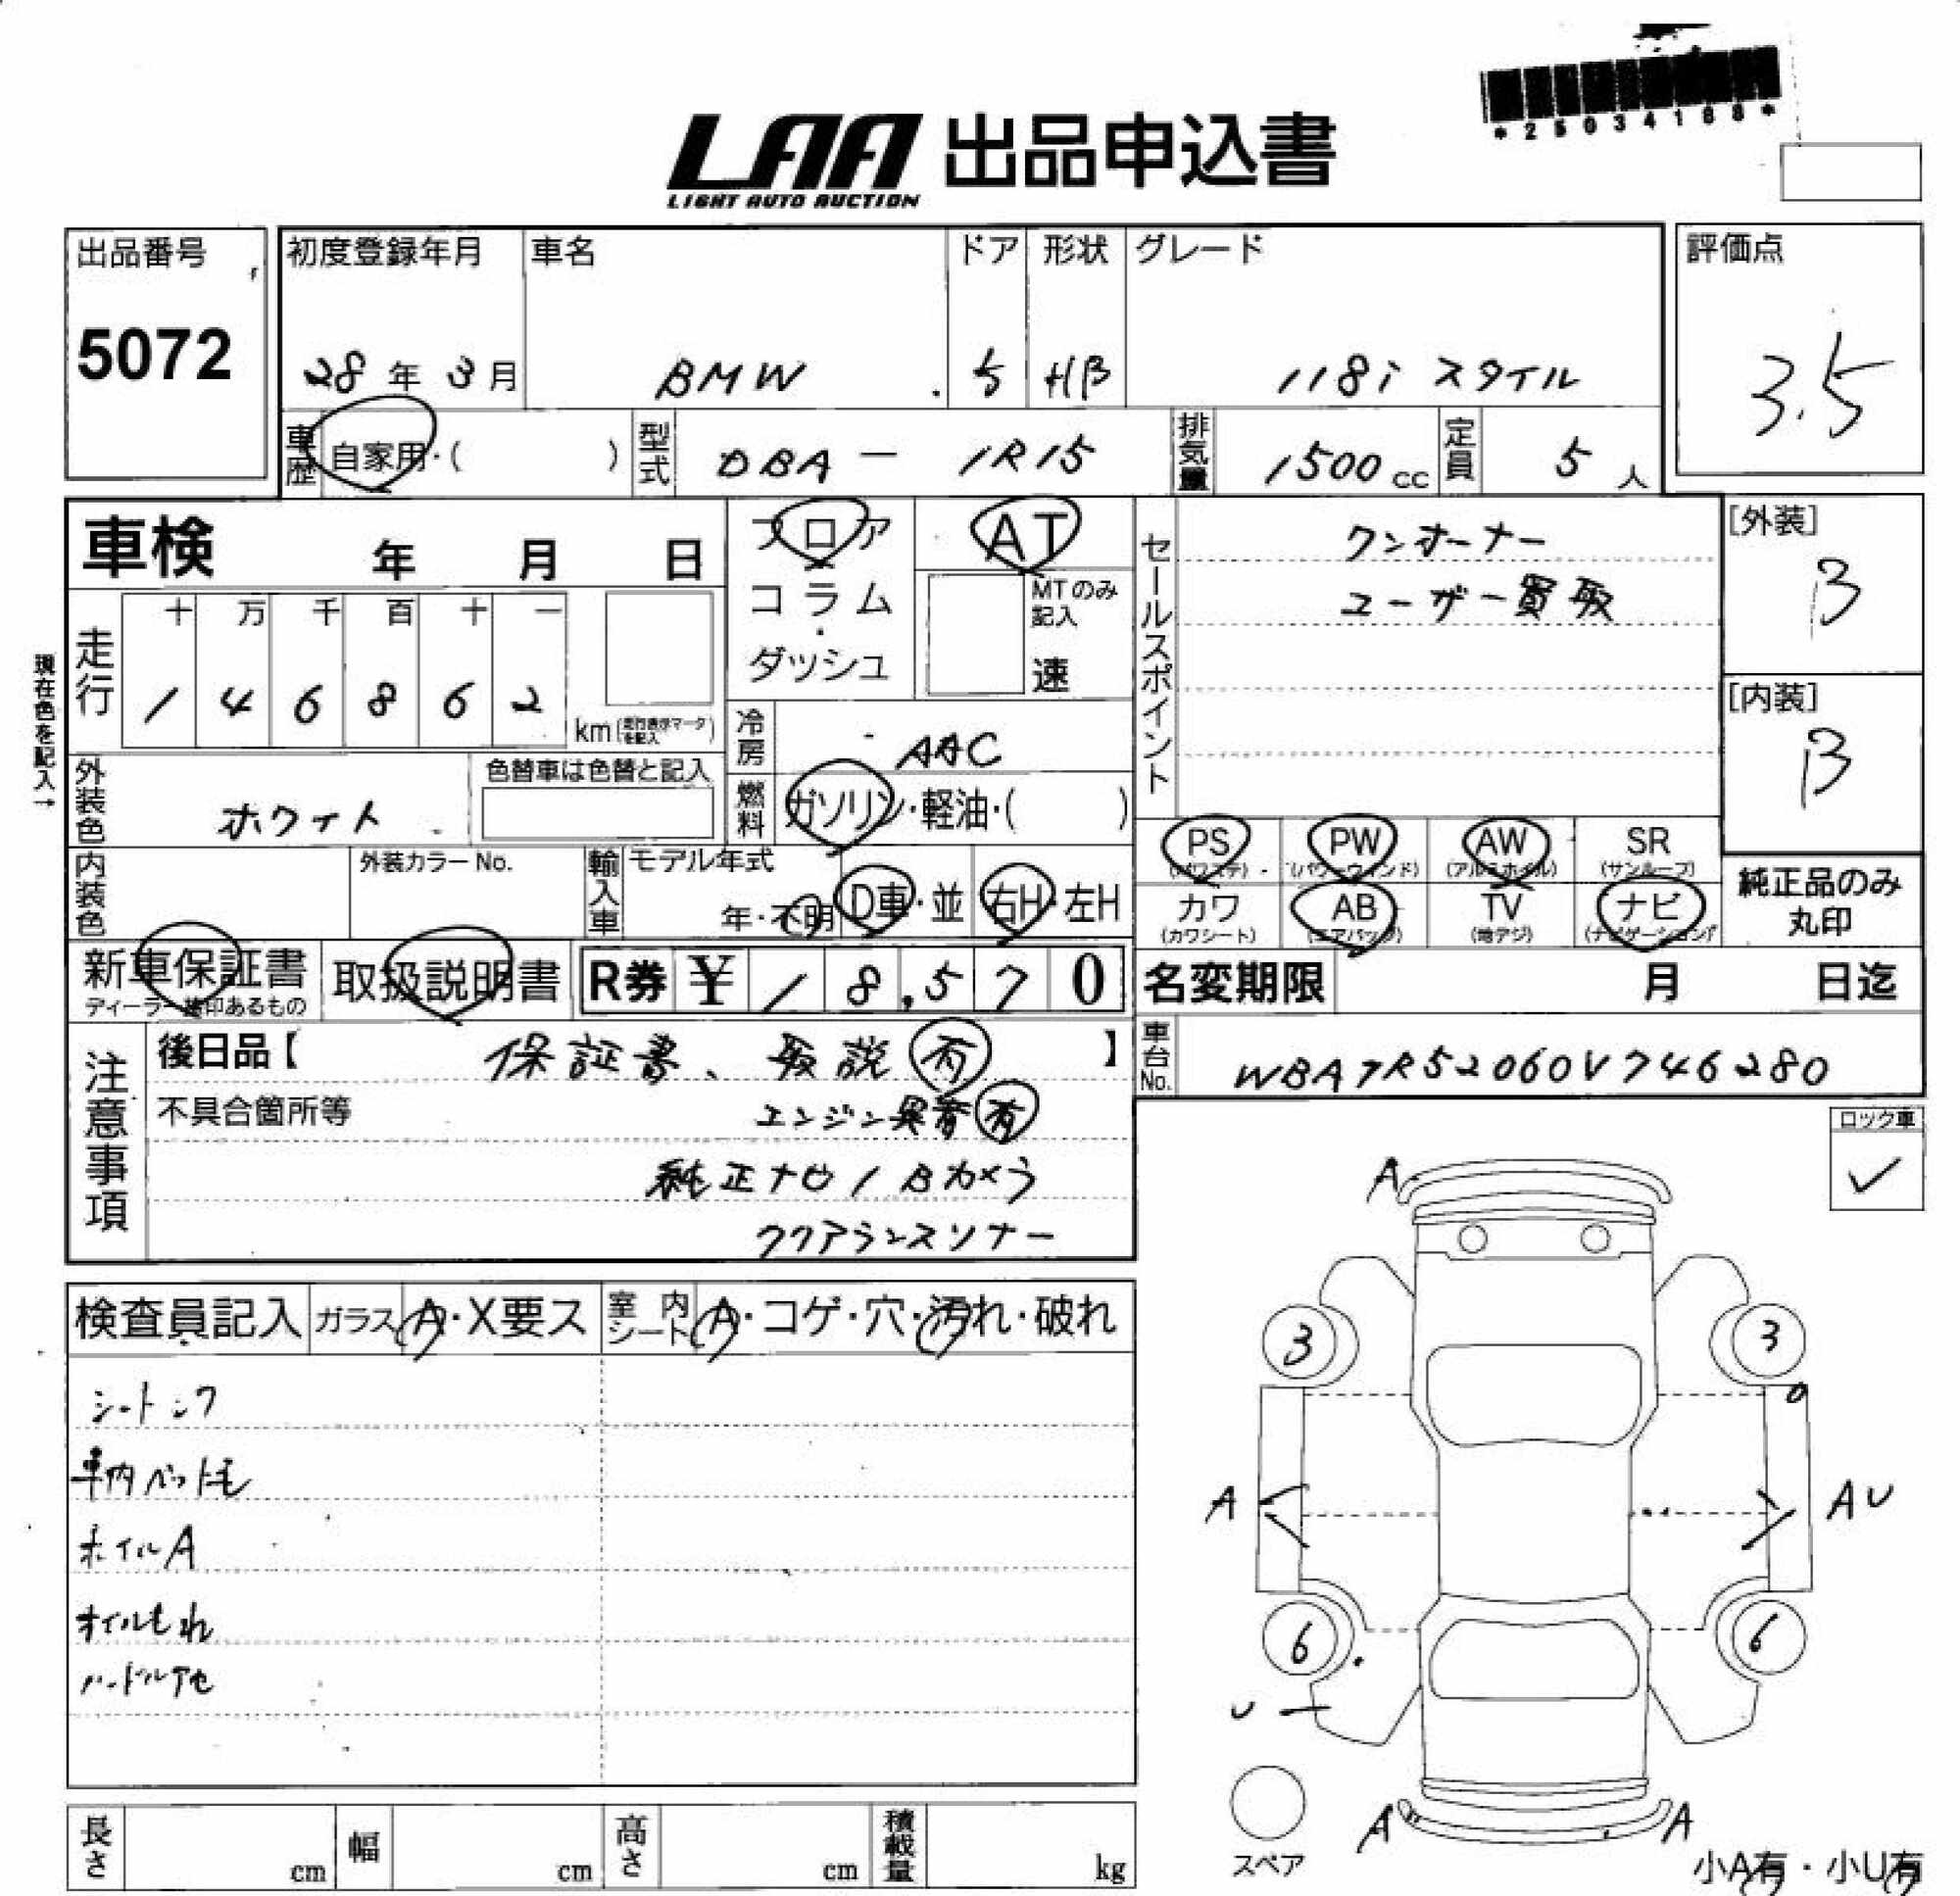 *25034188*
LAA 出品申込書
LIGHT AUTO AUCTION
出品番号
5072
初度登録年月
28年3月
車名
BMW
ドア
5
形状
HB
グレード
118i スタイル
評価点
3.5
車歴
自家用・( )
型式
DBA — 1R15
排気量
1500cc
定員
5人
車検 年 月 日
フロア
コラム
・
ダッシュ
AT
MTのみ記入
速
セールスポイント
ワンオーナー
ユーザー買取
[外装]
B
[内装]
B
現在色を記入→
走行
十 万 千 百 十 一
1 4 6 8 6 2
km(走行表示マークを記入)
冷房
AAC
燃料
ガソリン・軽油・( )
外装色
ホワイト
色替車は色替と記入
内装色
外装カラーNo.
輸入車
モデル年式
年・不明
D車・並
右H・左H
PS
(パワステ)
PW
(パワーウィンド)
AW
(アルミホイル)
SR
(サンルーフ)
カワ
(カワシート)
AB
(エアバッグ)
TV
(地デジ)
ナビ
(ナビゲーション)
純正品のみ
丸印
新車保証書
ディーラー捺印あるもの
取扱説明書
R券 ¥ 18,570
名変期限 月 日迄
注意事項
後日品【 保証書、取説 有 】
不具合箇所等 エンジン異音有
純正ナビ/Bカメラ
クリアランスソナー
車台No.
WBA7R52060V746280
ロック車
✓
検査員記入
ガラス A・X要ス
室内シート A・コゲ・穴・汚れ・破れ
車内ペット毛
ホイルA
オイルもれ
A
3
3
A
AU
6
6
U
A
A
スペア
小A有・小U有
長さ cm
幅 cm
高さ cm
積載量 kg